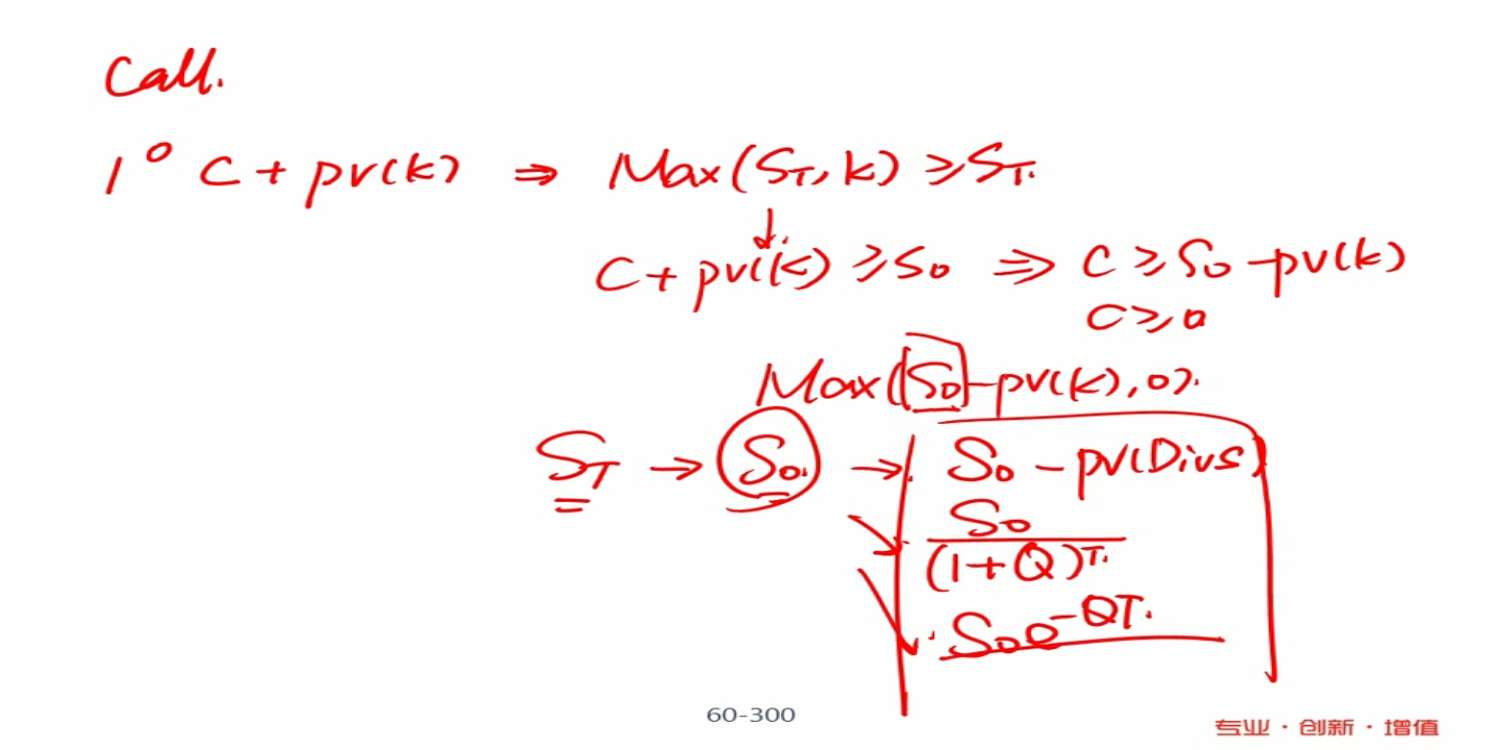 Call.
1° C + pv(k) ⇒ Max(S_T, k) ≥ S_T.
↓
C + pv(k) ≥ S_0 ⇒ C ≥ S_0 - pv(k)
C ≥ 0
Max(S_0 - pv(k), 0).
S_T → S_0. → S_0 - pv(Divs)
S_0
(1+Q)^T.
S_0 e^{-QT}.
60-300
专业·创新·增值